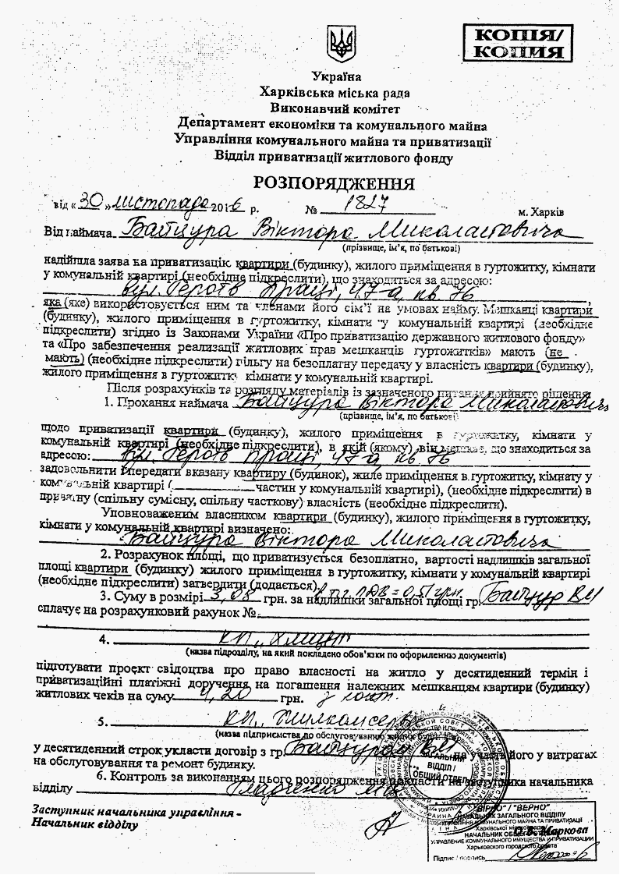 КОПІЯ/
КОПИЯ
Україна
Харківська міська рада
Виконавчий комітет
Департамент економіки та комунального майна
Управління комунального майна та приватизації
Відділ приватизації житлового фонду
РОЗПОРЯДЖЕННЯ
від «30» листопада 2016 р. № 1827 м. Харків
Від наймача Байцура Віктора Миколайовича
(прізвище, ім'я, по батькові)
надійшла заява на приватизацію квартири (будинку), жилого приміщення в гуртожитку, кімнати
у комунальній квартирі (необхідне підкреслити), що знаходяться за адресою:
вул. Героїв Праці, 47-а, кв. 76
яка (яке) використовується ним та членами його сім'ї на умовах найму. Мешканці квартири
(будинку), жилого приміщення в гуртожитку, кімнати у комунальній квартирі (необхідне
підкреслити) згідно із Законами України «Про приватизацію державного житлового фонду»
та «Про забезпечення реалізації житлових прав мешканців гуртожитків» мають (не
мають) (необхідне підкреслити) пільгу на безоплатну передачу у власність квартири (будинку),
жилого приміщення в гуртожитку кімнати у комунальній квартирі.
Після розрахунків та розгляду матеріалів із зазначеного питання прийнято рішення
1. Прохання наймача Байцура Віктора Миколайовича
(прізвище, ім'я, по батькові)
щодо приватизації квартири (будинку), жилого приміщення в гуртожитку, кімнати у
комунальній квартирі (необхідне підкреслити), в якій (якому) він мешкає, що знаходиться за
адресою: вул. Героїв Праці, 47-а, кв. 76
задовольнити і передати вказану квартиру (будинок), жиле приміщення в гуртожитку, кімнату у
комунальній квартирі ( частин у комунальній квартирі), (необхідне підкреслити) в
приватну (спільну сумісну, спільну часткову) власність (необхідне підкреслити).
Уповноваженим власником квартири (будинку), жилого приміщення в гуртожитку,
кімнати у комунальній квартирі визначено:
Байцура Віктора Миколайовича
2. Розрахунок площі, що приватизується безоплатно, вартості надлишків загальної
площі квартири (будинку) жилого приміщення в гуртожитку, кімнати у комунальній квартирі
(необхідне підкреслити) затвердити (додається).
3. Суму в розмірі 3,08 грн. за надлишки загальної площі гр. Байцур В.М
в т.ч. ПДВ = 0,51 грн.
сплачує на розрахунковий рахунок №
4. КП
(назва підрозділу, на який покладено обов'язки по оформленню документів)
підготувати проєкт свідоцтва про право власності на житло у десятиденний термін і
приватизаційні платіжні доручення на погашення належних мешканцям квартири (будинку)
житлових чеків на суму грн.
5. КП „Жилкомсервіс
(назва підприємства по обслуговуванню жилих будинків)
у десятиденний строк укласти договір з гр. Байцуром В.М на участь його у витратах
на обслуговування та ремонт будинку.
6. Контроль за виконанням цього розпорядження покласти на заступника начальника
відділу
Заступник начальника управління -
Начальник відділу
ЗАГАЛЬНИЙ
ВІДДІЛ /
ОБЩИЙ ОТДЕЛ
"ВІРНО" / "ВЕРНО"
НАЧАЛЬНИК ЗАГАЛЬНОГО ВІДДІЛУ
УПРАВЛІННЯ КОМУНАЛЬНОГО МАЙНА ТА ПРИВАТИЗАЦІЇ
Харківської міської ради
О.В. Маркова
УПРАВЛЕНИЕ КОММУНАЛЬНОГО ИМУЩЕСТВА И ПРИВАТИЗАЦИИ
Харьковского городского совета
Підпис / подпись